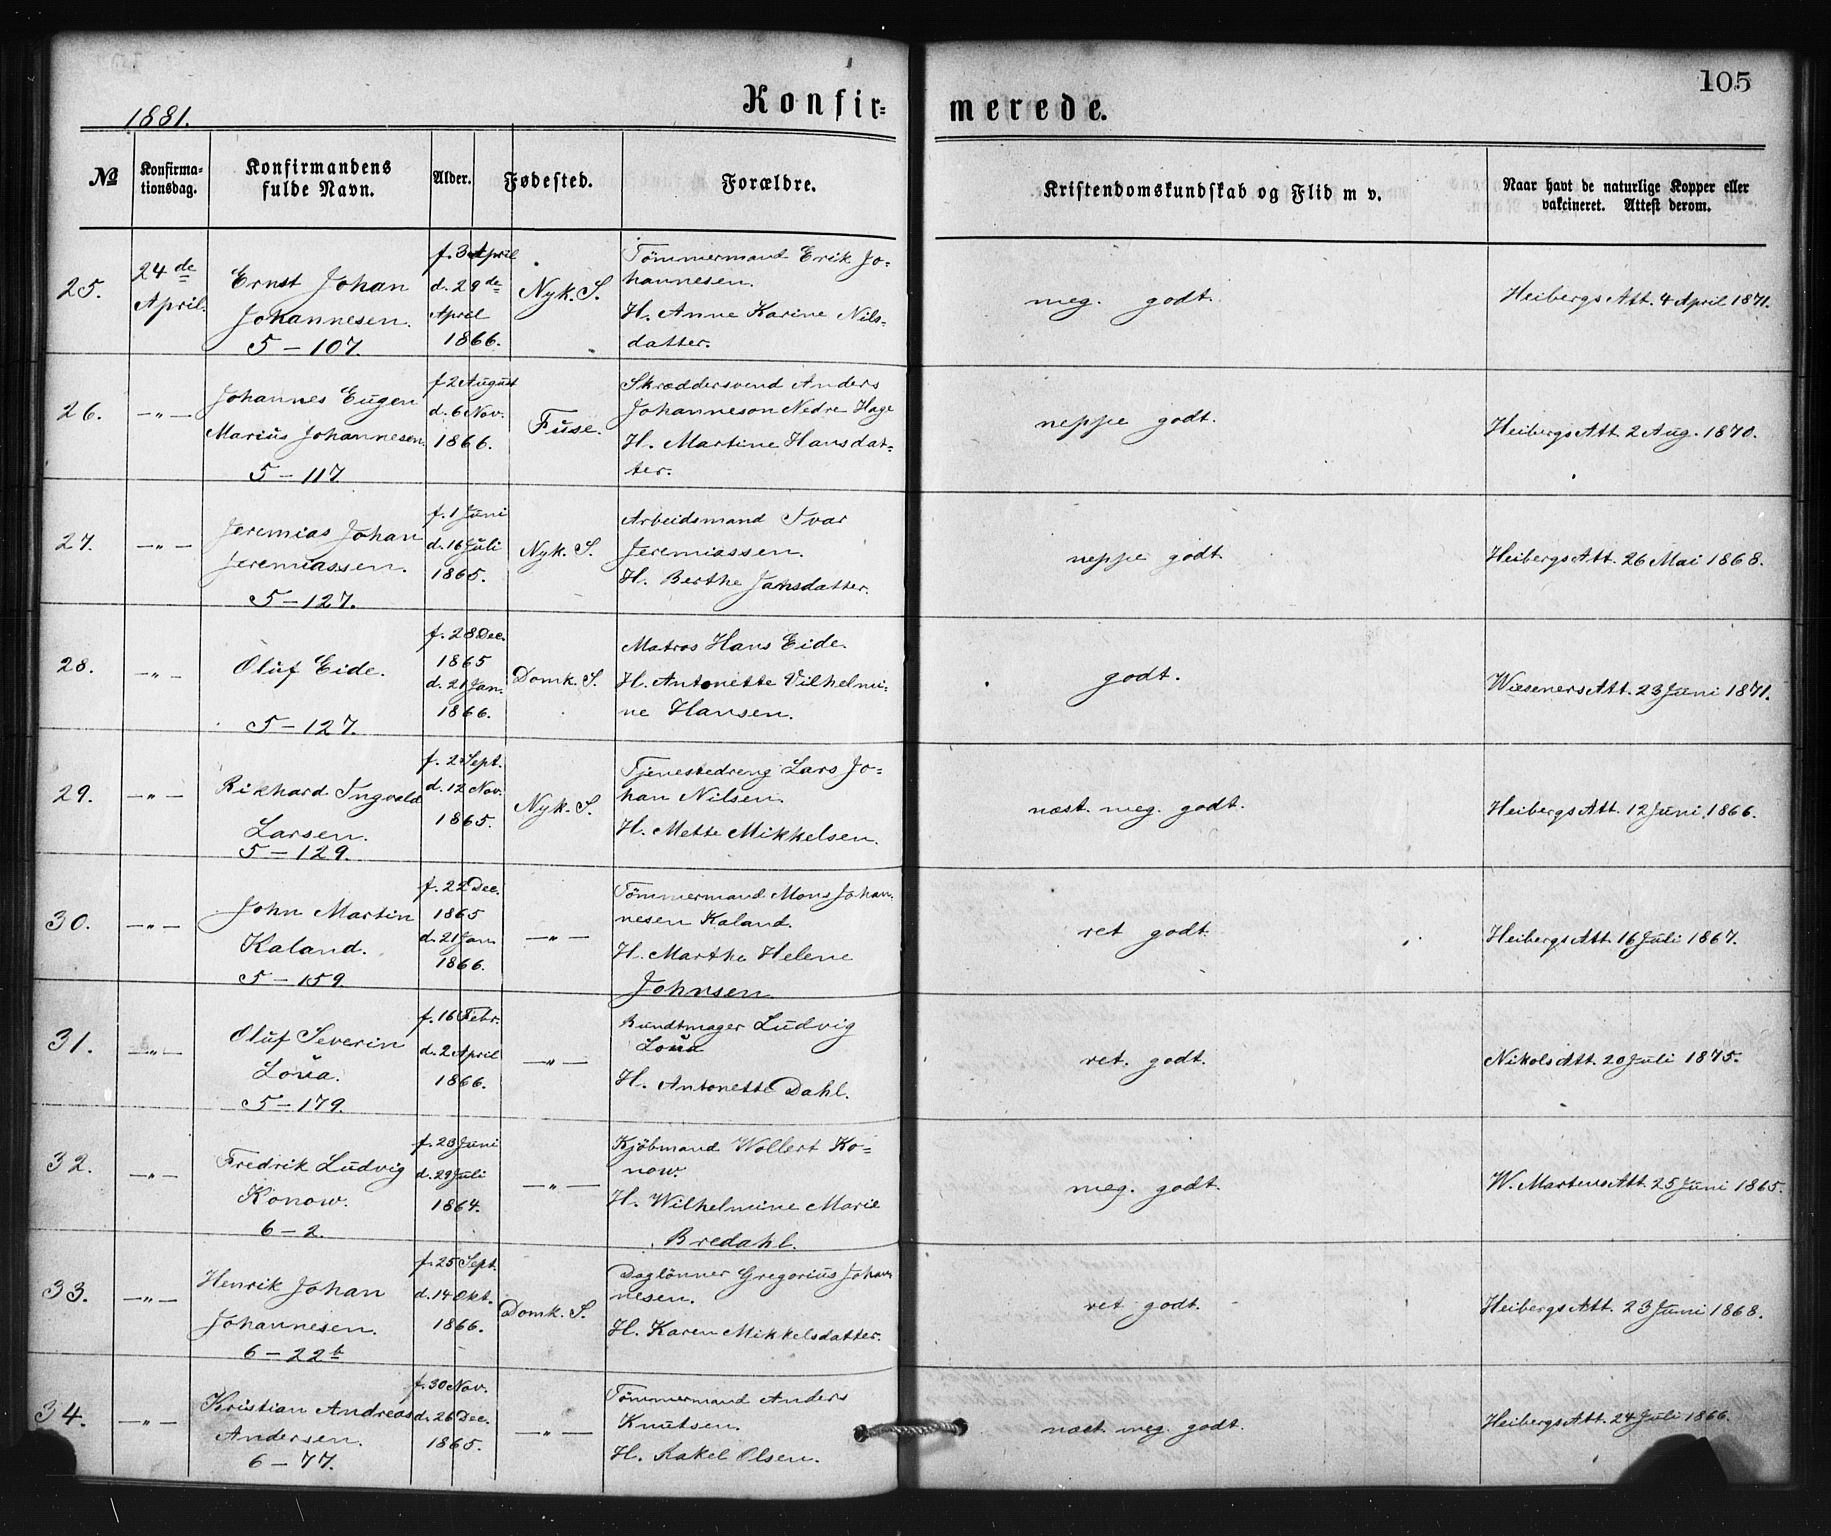 105
1881.
Konfir-
merede.
№
Konfirma-
tionsdag.
Konfirmandens
fulde Navn.
Alder.
Fødested.
Forældre.
Kristendomskundskab og Flid m v.
Naar havt de naturlige Kopper eller
vakcineret. Attest derom.
25.
24de
April.
Ernst Johan
Johannesen.
5 – 107.
f. 3 April
d. 29de
April
1866.
Nyk. S.
Tömmermand Erik Jo-
hannesen.
H. Anne Karine Nils-
datter.
meg. godt.
Heibergs Att. 4 April 1871.
26.
– " –
Johannes Eugen
Marius Johannesen.
5 – 117
f. 2 August
d. 6 Nov.
1866.
Fuse.
Skræddersvend Anders
Johanneson Nedre Hage
H. Martine Hansdat-
ter.
neppe godt.
Heibergs Att. 2 Aug. 1870.
27.
– " –
Jeremias Johan
Jeremiassen.
5 – 127.
f. 1 Juni
d. 16 Juli
1865.
Nyk. S.
Arbeidsmand Ivar
Jeremiassen.
H. Berthe Jansdatter.
neppe godt.
Heibergs Att. 26 Mai 1868.
28.
– " –
Oluf Eide.
5 – 127.
f. 28 Dec.
1865
d. 21 Jan.
1866.
Domk. S.
Matros Hans Eide.
H. Antonette Vilhelmi-
ne Hansen.
godt.
Wieseners Att. 23 Juni 1871.
29.
– " –
Rikhard Ingvald
Larsen.
5 – 129.
f. 2 Sept.
d. 12 Nov.
1865.
Nyk. S.
Tjenestedreng Lars Jo-
han Nilsen.
H. Mette Mikkelsen.
næst. meg. godt.
Heibergs Att. 12 Juni 1866.
30.
– " –
John Martin
Kaland.
5 – 159.
f. 22 Dec.
1865
d. 21 Jan.
1866.
– " –
Tömmermand Mons Johan-
nesen Kaland.
H. Marthe Helene
Johnsen
ret godt.
Heibergs Att. 16 Juli 1867.
31.
– " –
Oluf Severin
Loua.
5 – 179.
f. 16 Febr.
d. 2 April
1866.
– " –
Bundtmager Ludvig
Loua
H. Antonette Dahl.
ret. godt.
Nikols Att. 20 Juli 1875.
32.
– " –
Fredrik Ludvig
Konow.
6 – 2.
f. 23 Juni
d. 29 Juli
1864.
– " –
Kjöbmand Wollert Ko-
now.
H. Wilhelmine Marie
Bredahl.
meg. godt.
W. Martens Att. 25 Juni 1865.
33.
– " –
Henrik Johan
Johannesen.
6 – 22b
f. 25 Sept.
d. 14 Okt.
1866.
Domk. S.
Daglönner Gregorius Johan-
nesen.
H. Karen Mikkelsdatter.
ret godt.
Heibergs Att. 23 Juni 1868.
34.
– " –
Kristian Andreas
Andersen.
6 – 77.
f. 30 Nov.
d. 26 Dec.
1865.
– " –
Tömmermand Anders
Knutsen.
H. Rakel Olsen.
næst. meg. godt.
Heibergs Att. 24 Juli 1866.